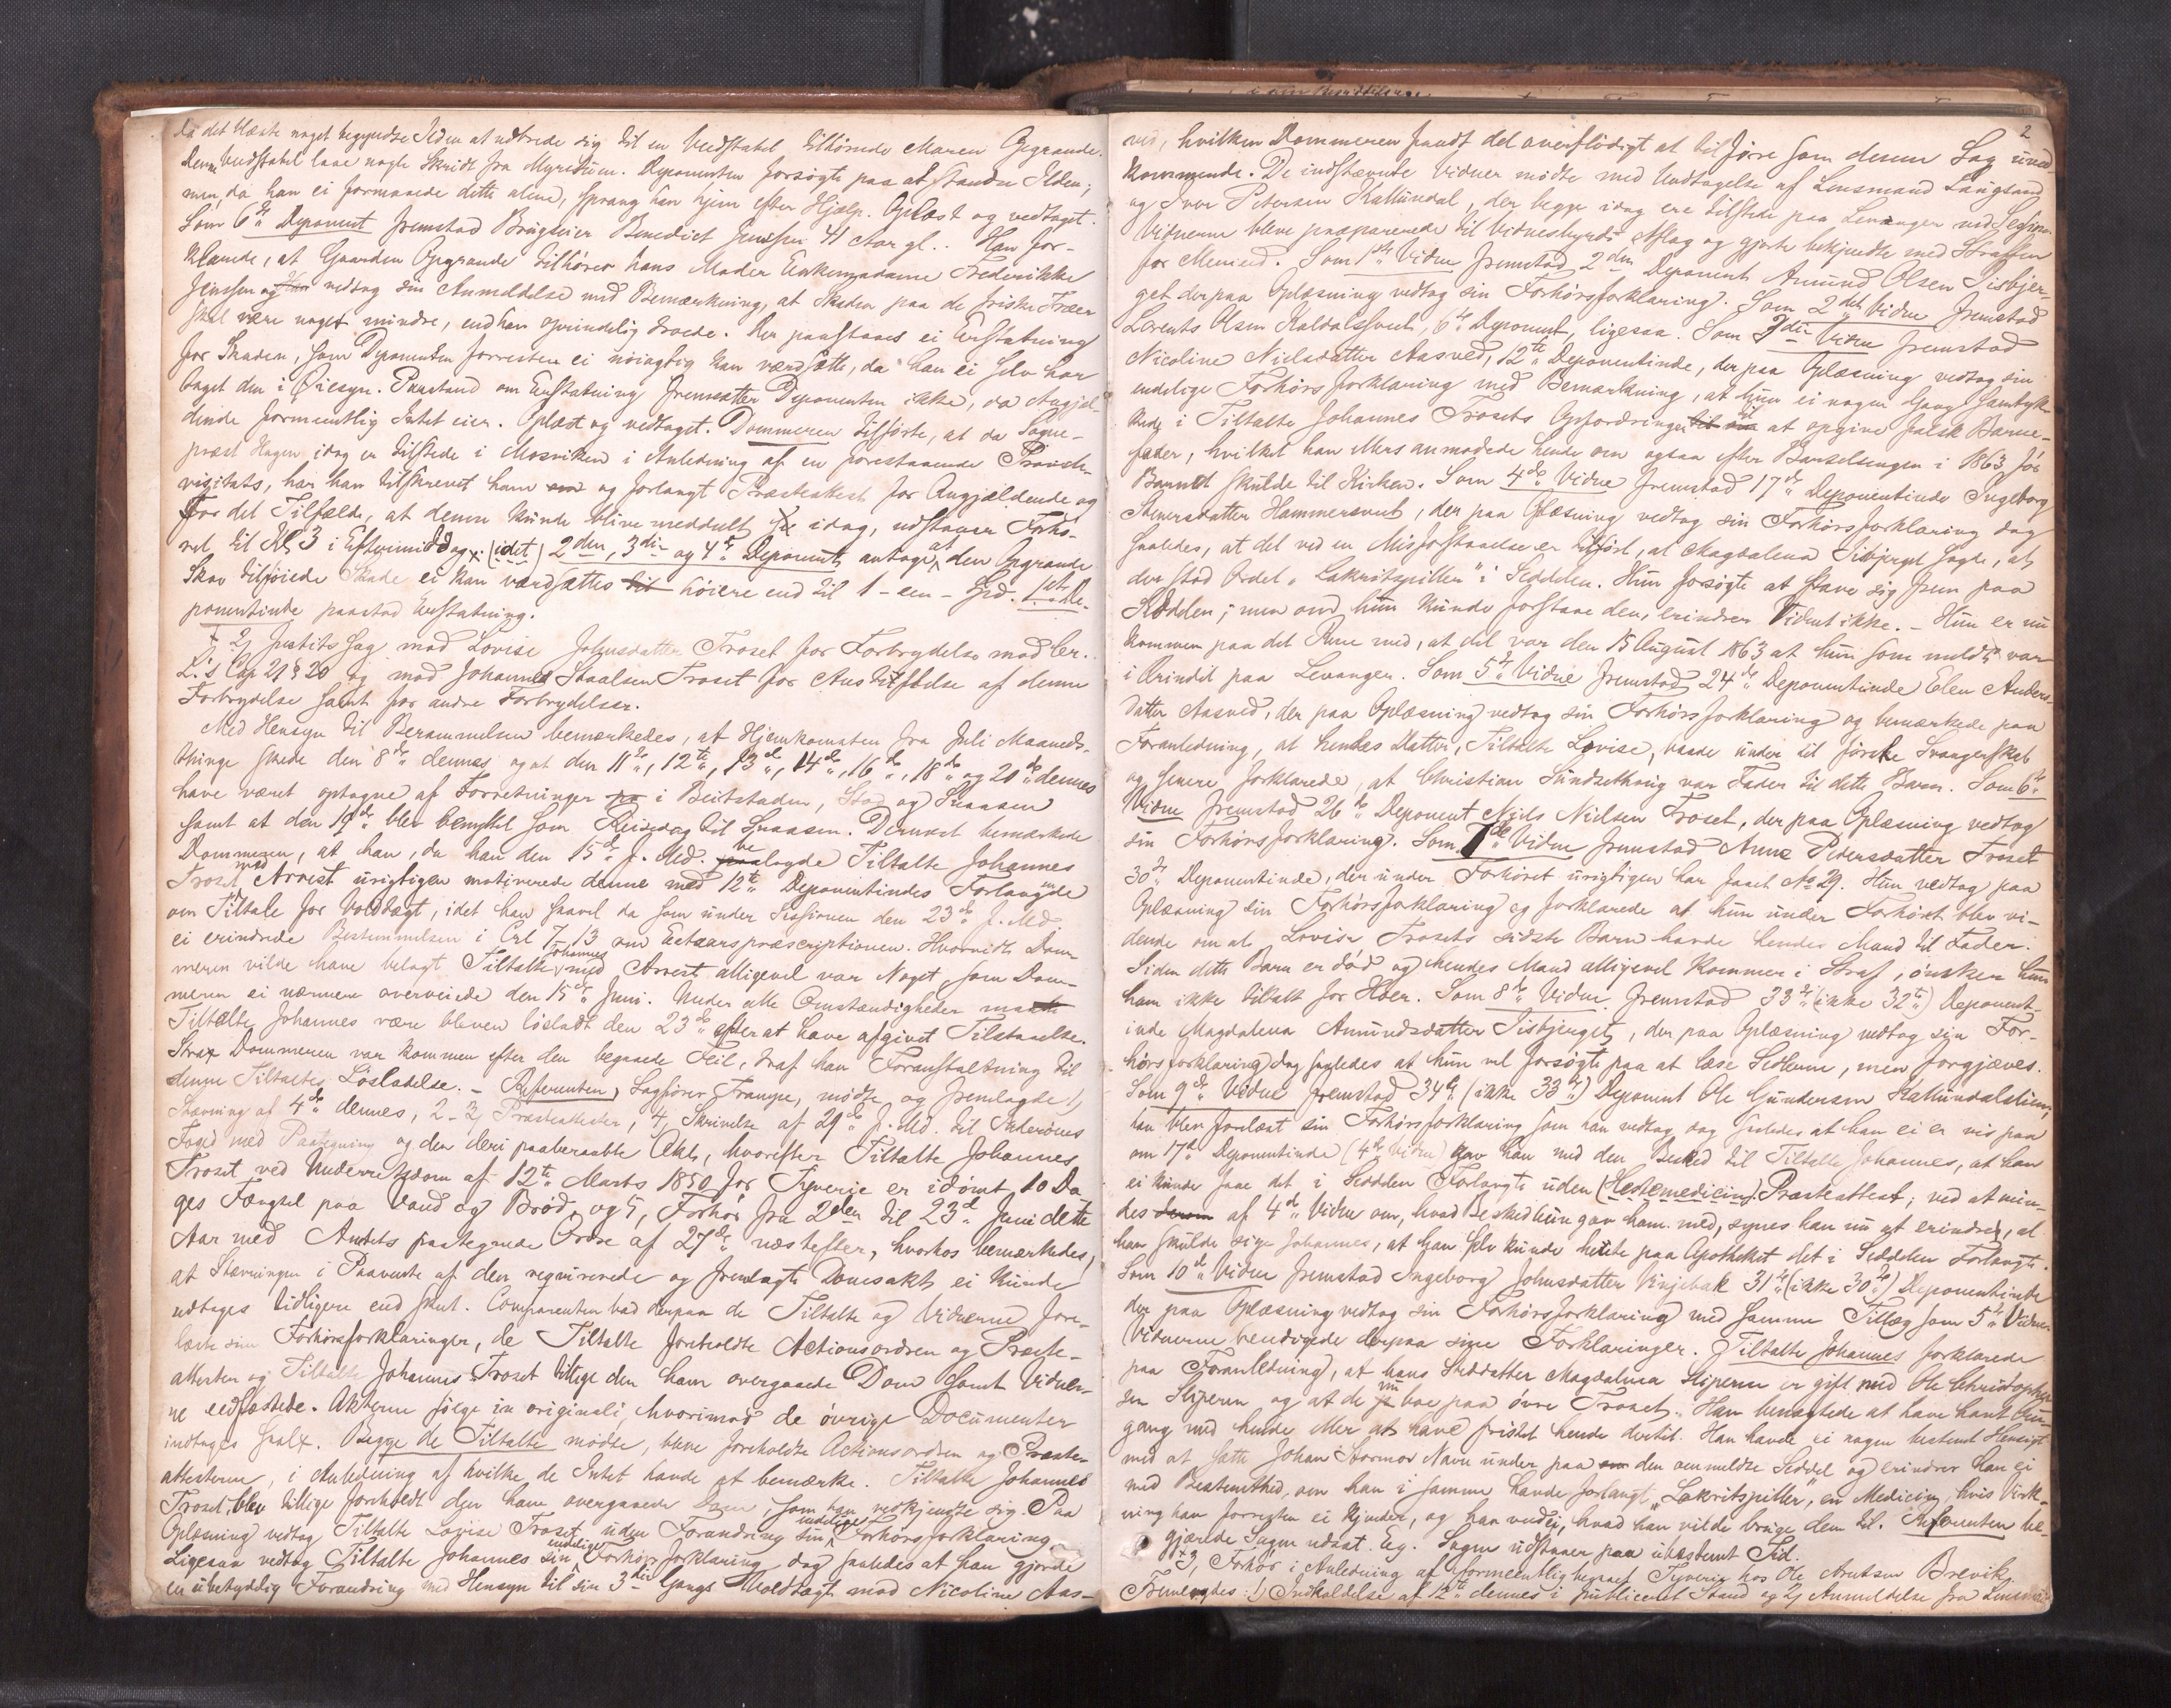 da det blæste noget begyndte Ilden at udbrede sig til en Vedstabel tilhørende Maren Opgrande.
Denne Vedstabel laae nogle Skridt fra Myretuen. Deponenten forsøgte paa at standse Ilden;
men, da han ei formaaede dette alene, sprang han hjem efter Hjælp. Oplæst og vedtaget.
Som 6te Deponent fremstod Brugseier Benedict Jenssen 41 Aar gl.. Han for-
klarede, at Gaarden Opgrande tilhører hans Moder Enkemadame Frederikke
Jenssen og vedtog sin Anmeldelse med Bemærkning, at Skaden paa de friske Træer
skal være noget mindre, end han oprindelig troede. Der paastaaes ei Erstatning
for Skaden, som Deponenten forresten ei nøiagtig kan værdsætte, da han ei selv har
taget den i Øiesyn. Paastand om Erstatning fremsætter Deponenten ikke, da Angjæl-
dende formeentlig Intet eier. Oplæst og vedtaget. Dommeren tilførte, at da Sogne-
præst Hagen idag er tilstede i Mosviken i Anledning af en forestaaende Provste-
visitats, har han tilskrevet ham og forlangt Præsteattest for Angjældende og
for det Tilfælde, at denne kunde blive meddelt idag, udstaaer Forhø-
ret til Kl 3 i Eftermiddag. (idet) 2den, 3die og 4de Deponent antage, at den Opgrande
Skov tilføiede Skade ei kan værdsættes til høiere end til 1 - een - Spd. 1ste De-
ponentinde paastod Erstatning.
2) Justits Sag mod Lovise Johnsdatter Troset for Forbrydelse mod Cr.
L.s Cap 21 § 20 og mod Johannes Staalsen Troset for Anstiftelse af denne
Forbrydelse samt for andre Forbrydelser.
Med Hensyn til Berammelsen bemærkedes, at Hjemkomsten fra Juli Maaneds-
thinge skede den 8de dennes og at den 11te, 12te, 13de, 14de, 16de, 18de og 20de dennes
have været optagne af Forretninger i Beitstaden, Stod og Snaasen
samt at den 19de blev benyttet som Reisedag til Snaasen. Dernæst bemærkede
Dommeren, at han, da han den 15de f. Md. belagde Tiltalte Johannes
Troset med Arrest urigtigen motiverede denne med 12te Deponentindes Forlangende
om Tiltale for Voldtægt, idet han saavel da som under Sessionen den 23de f. Md
ei erindrede Bestemmelsen i Crl 7, 13 om Eetaarspræscriptionen. Hvorvidt Dom-
meren vilde have belagt Tiltalte Johannes med Arrest alligevel var Noget, som Dom-
meren ei nærmere overveiede den 15de Juni. Under alle Omstændigheder maatte
Tiltalte Johannes være bleven løsladt den 23de efterat have afgivet Tilstaaelse.
Strax Dommeren var kommen efter den begaaede Feil, traf han Foranstaltning til
denne Tiltaltes Løsladelse. - Referenten, Sagfører Trampe, mødte og fremlagde 1)
Stævning af 4de dennes, 2-3) Præsteattester, 4, Skrivelse af 29de f. Md. til Inderøens
Foged med Paategning og den deri paaberaabte Akt, hvorefter Tiltalte Johannes
Troset ved Underretsdom af 12te Marts 1850 for Tyverie er idømt 10 Da-
ges Fængsel paa Vand og Brød, og 5, Forhør fra 2den til 23de Juni dette
Aar med Amtets paategnede Ordre af 27de næstefter, hvorhos bemærkedes,
at Stævningen i Paavente af den reqvirerede og fremlagte Domsakt ei kunde
udtages tidligere end skeet. Comparenten bad derpaa de Tiltalte og Vidnerne fore-
læste sine Forhørsforklaringer, de Tiltalte foreholdte Actionsordren og Præste-
attester og Tiltalte Johannes Troset tillige den ham overgaaede Dom samt Vidner-
ne eedfæstede. Akterne følge in originali, hvorimod de øvrige Documenter
indtages saal. Begge de Tiltalte mødte, bleve foreholdte Actionsordren og Præste-
attesterne, i Anledning af hvilke de Intet havde at bemærke. Tiltalte Johannes
Troset blev tillige foreholdt den ham overgaaede Dom, som han vedkjendte sig. Paa
Oplæsning vedtog Tiltalte Lovise Troset uden Forandring sin endelige Forhørsforklaring.
Ligesaa vedtog Tiltalte Johannes sin endelige Forhørsforklaring dog saaledes at han gjorde
en ubetydelig Forandring med Hensyn til sin 3die Gangs Voldtægt mod Nicoline Aas-
2
ved, hvilken Dommeren fandt det overflødigt at tilføre som denne Sag uved-
kommende. De indstævnte Vidner mødte med Undtagelse af Lensmand Laugsand
og Iver Petersen Kattundal, der begge idag ere tilstede paa Levanger ved Sessionen.
Vidnerne bleve præparerede til Vidnesbyrds Aflæg og gjorte bekjendte med Straffen
for Meneed. Som 1ste Vidne fremstod 2den Deponent Amund Olsen Tisbjer-
get der paa Oplæsning vedtog sin Forhørsforklaring. Som 2det Vidne fremstod
Lorents Olsen Kaldalssveet, 6te Deponent, ligesaa. Som 3die Vidne fremstod
Nicoline Nielsdatter Aasved, 12te Deponentinde, der paa Oplæsning vedtog sin
endelige Forhørsforklaring med Bemærkning, at hun ei nogen Gang samtyk-
kede i Tiltalte Johannes Trosets Opfordringer til at opgive falsk Barne-
fader, hvilket han ellers anmodede hende om ogsaa efter Barselsengen i 1863 før
Barnet skulde til Kirken. Som 4de Vidne fremstod 17de Deponentinde Ingeborg
Steenersdatter Hammersveet, der paa Oplæsning vedtog sin Forhørsforklaring dog
saaledes, at det ved en Misforstaaelse er tilført, at Magdalena Tisbjerget sagde, at
der stod Ordet "Lakritspiller" i Seddelen. Hun forsøgte at stave sig frem paa
Seddelen; men om hun kunde forstaae den, erindrer Vidnet ikke. - Hun er nu
kommen paa det Rene med, at det var den 15 August 1863 at hun som meldt var
i Ærindet paa Levanger. Som 5te Vidne fremstod 24de Deponentinde Elen Anders-
datter Aasved, der paa Oplæsning vedtog sin Forhørsforklaring og bemærkede paa
Foranledning, at hendes Datter, Tiltalte Lovise, baade under sit første Svangerskab
og senere forklarede, at Christian Sundsethaug var Fader til dette Barn. Som 6te
Vidne fremstod 26de Deponent Niels Nielsen Troset, der paa Oplæsning vedtog
sin Forhørsforklaring. Som 7de Vidne fremstod Anne Petersdatter Troset
30te Deponentinde, der under Forhøret urigtigen har faaet No 29. Hun vedtog paa
Oplæsning sin Forhørsforklaring og forklarede at hun under Forhøret blev vi-
dende om at Lovise Trosets sidste Barn havde hendes Mand til Fader.
Siden dette Barn er død og hendes Mand alligevel kommer i Straf, ønsker hun
ham ikke tiltalt for Hoer. Som 8de Vidne fremstod 33te (ikke 32te) Deponent-
inde Magdalena Amundsdatter Tisbjerget, der paa Oplæsning vedtog sin For-
hørsforklaring dog saaledes at hun vel forsøgte paa at læse Sedlerne, men forgjæves.
Som 9de Vidne fremstod 34te (ikke 33te) Deponent Ole Gundersen Kattundalslien,
han blev forelæst sin Forhørsforklaring som han vedtog dog saaledes at han ei er vis paa
om 17de Deponentinde (4de Vidne) gav ham med den Besked til Tiltalte Johannes, at han
ei kunde faae det i Seddelen Forlangte uden (Hestemedicin) Præsteattest; ved at min-
des af 4de Vidne om, hvad Besked hun gav ham med, synes han nu at erindre, at
han skulde sige Johannes, at han selv kunde hente paa Apotheket det i Seddelen Forlangte.
Som 10de Vidne fremstod Ingeborg Johnsdatter Vinjebak 31te (ikke 30te) Deponentinde
der paa Oplæsning vedtog sin Forhørsforklaring med samme Tillæg som 5te Vidne.
Vidnerne beedigede derpaa sine Forklaringer. Tiltalte Johannes forklarede
paa Foranledning, at hans Steddatter Magdalena Stiperen er gift med Ole Christopher-
sen Stiperen og at de nu boe paa øvre Troset. Han benægtede at have havt Om-
gang med hende eller at have fristet hende dertil. Han havde ei nogen bestemt Hensigt
med at sætte Johan Stormor Navn under paa den ommeldte Seddel og erindrer han ei
med Bestemthed, om han i samme havde forlangt "Lakritspiller", en Medicin, hvis Virk-
ning han forresten ei kjender, og han veed ei, hvad han vilde bruge dem til. Referenten be-
gjærede Sagen udsat. Eg. Sagen udstaaer paa ubestemt Tid.
3, Forhør i Anledning af formeentlig begaaet Tyverie hos Ole Arntsen Brevik.
Fremlagdes: 1) Indkaldelse af 12te dennes i publiceret Stand og 2) Anmeldelse fra Lensmand